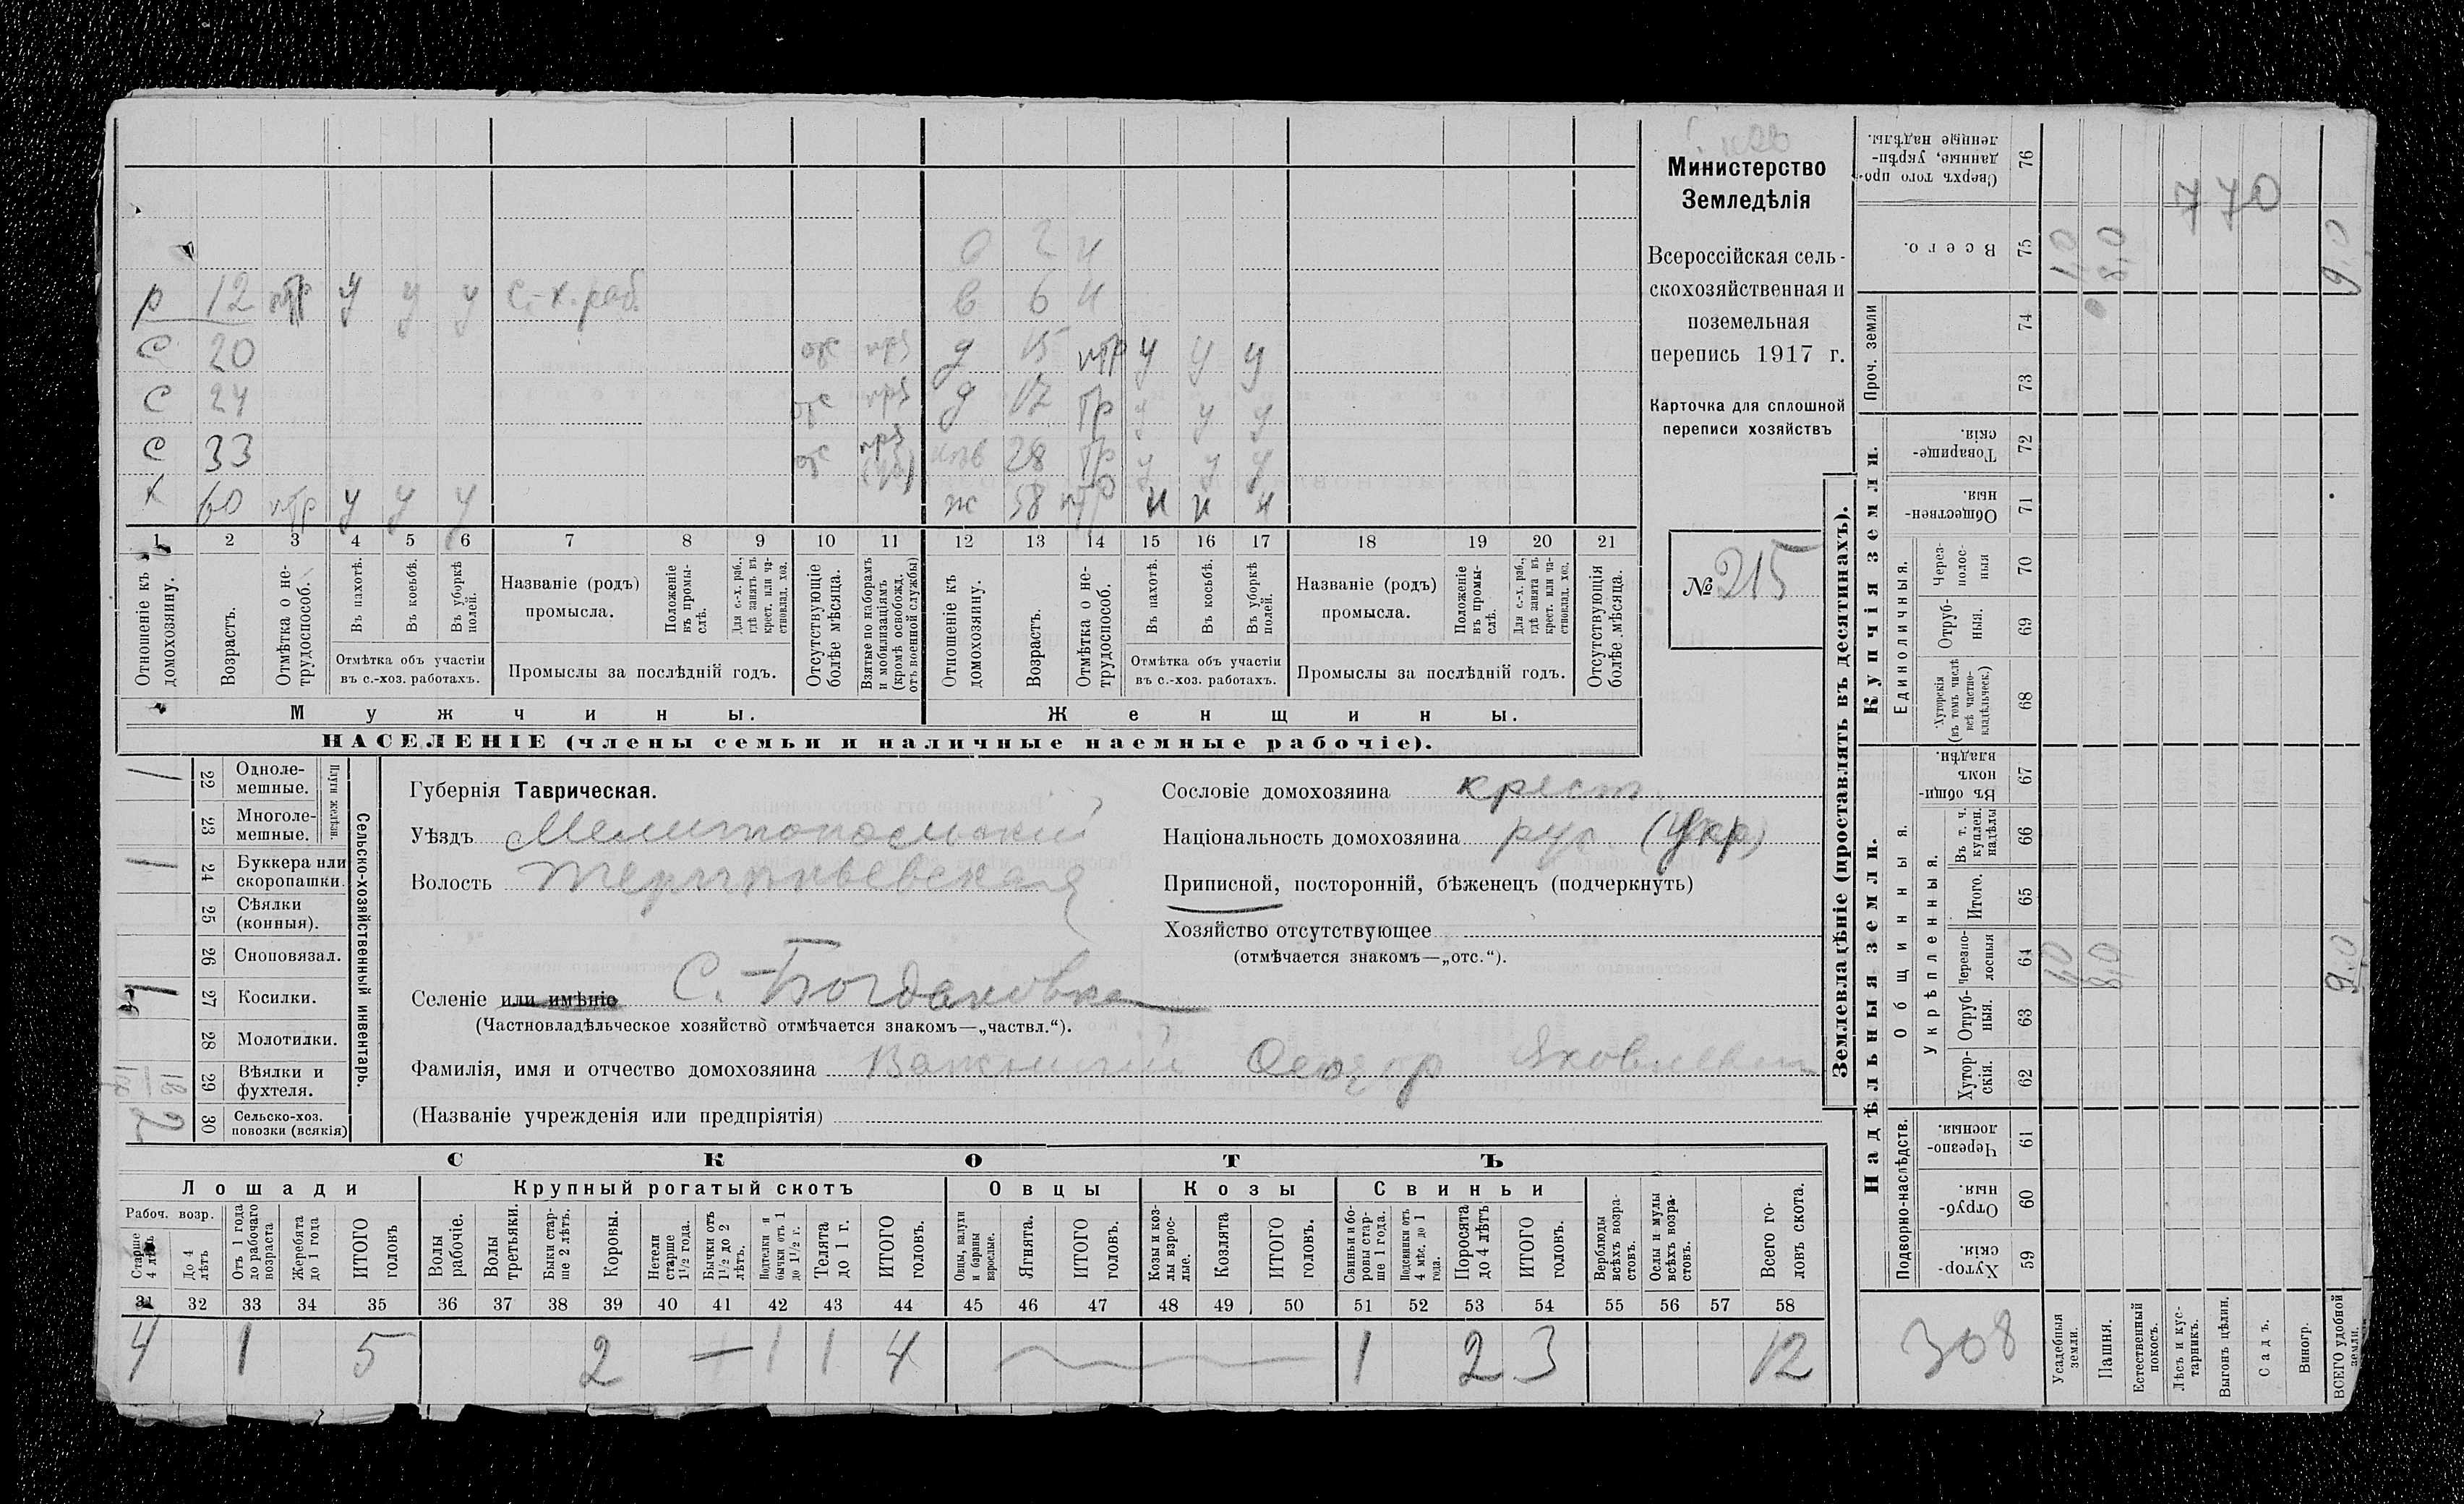 Министерство
Земледѣлія
Всероссійская сель-
скохозяйственная и
поземельная
перепись 1917 г.
Карточка для сплошной
переписи хозяйствъ
№ 215
о 2 н
р 12 птр у у у с.-х. раб. в 6 н
с 20 отс д 15 птр у у у
с 24 отс д 17 тр у у у
с 33 отс 28 тр у у у
х 60 птр у у у ж 58 птр н н н
1 2 3 4 5 6 7 8 9 10 11 12 13 14 15 16 17 18 19 20 21
Отношеніе къ домохозяину.
Возрастъ.
Отмѣтка о не-трудоспособ.
Въ пахотѣ.
Въ косьбѣ.
Въ уборкѣ полей.
Отмѣтка объ участіи
въ с.-хоз. работахъ.
Названіе (родъ)
промысла.
Положеніе въ промы-слѣ.
Для с.-х. раб., гдѣ занятъ въ крест. или ча-ствовлад. хоз.
Промыслы за послѣдній годъ.
Отсутствующіе болѣе мѣсяца.
Взятые по наборамъ и мобилизаціямъ (кромѣ освобожд. отъ военной службы)
Отношеніе къ домохозяину.
Возрастъ.
Отмѣтка о не-трудоспособ.
Въ пахотѣ.
Въ косьбѣ.
Въ уборкѣ полей.
Отмѣтка объ участіи
въ с.-хоз. работахъ.
Названіе (родъ)
промысла.
Положеніе въ промы-слѣ.
Для с.-х. раб., гдѣ занята въ крест. или ча-ствовлад. хоз.
Промыслы за послѣдній годъ.
Отсутствующія болѣе мѣсяца.
Мужчины. Женщины.
НАСЕЛЕНІЕ (члены семьи и наличные наемные рабочіе).
Сельско-хозяйственный инвентарь.
Плуги желѣзн.
22 Одноле-мешные. 1
23 Многоле-мешные.
24 Буккера или скоропашки. 1
25 Сѣялки (конныя).
26 Сноповязал.
27 Косилки. 1
28 Молотилки.
29 Вѣялки и фухтеля.
30 Сельско-хоз. повозки (всякія) 2
Губернія Таврическая.
Уѣздъ Мелитопольскій
Волость
Селеніе или имѣніе С. Богдановка
(Частновладѣльческое хозяйство отмѣчается знакомъ—„частвл.“).
Фамилія, имя и отчество домохозяина Важничій Ѳеодор Яковлевич
(Названіе учрежденія или предпріятія)
Сословіе домохозяина крест
Національность домохозяина рус. (Укр)
Приписной, посторонній, бѣженецъ (подчеркнуть)
Хозяйство отсутствующее
(отмѣчается знакомъ—„отс.“).
СКОТЪ
Лошади Крупный рогатый скотъ Овцы Козы Свиньи
Рабоч. возр.
Старше 4 лѣтъ
До 4 лѣтъ
Отъ 1 года до рабочаго возраста
Жеребята до 1 года
ИТОГО головъ
Волы рабочіе.
Волы третьяки.
Быки стар-ше 2 лѣтъ.
Коровы.
Нетели старше 1½ года.
Бычки отъ 1½ до 2 лѣтъ.
Подтелки и бычки отъ 1 до 1½ г.
Телята до 1 г.
ИТОГО головъ.
Овцы, валухи и бараны взрослые.
Ягнята.
ИТОГО головъ.
Козы и коз-лы взрос-лые.
Козлята
ИТОГО головъ.
Свиньи и бо-ровы стар-ше 1 года.
Подсвинки отъ 4 мѣс. до 1 года.
Поросята до 4 лѣтъ
ИТОГО головъ.
Верблюды всѣхъ возра-стовъ.
Ослы и мулы всѣхъ возра-стовъ.
Всего го-ловъ скота.
31 32 33 34 35 36 37 38 39 40 41 42 43 44 45 46 47 48 49 50 51 52 53 54 55 56 57 58
4 1 5 2 — 1 1 4 1 2 3 12
Землевладѣніе (проставлять въ десятинахъ).
Надѣльныя земли. Купчія земли. Проч. земли
Подворно-наслѣдств.
Общинныя.
Укрѣпленныя.
Единоличныя.
59 Хутор-скія.
60 Отруб-ныя.
61 Черезпо-лосныя.
62 Хутор-скія.
63 Отруб-ныя.
64 Черезпо-лосныя 1,0 8,0 9,0
65 Итого.
66 Въ т. ч. куплен. надѣлы
67 Въ общи-номъ владѣн.
68 Хуторскія (въ томъ числѣ всѣ частно-владѣльческ.)
69 Отруб-ныя.
70 Через-полос-ныя
71 Обществен-ныя.
72 Товарище-скія.
73
74
75 Всего. 1,0 8,0 9,0
76 Сверхъ того про-данные, укрѣп-ленные надѣлы.
770
308
Усадебныя земли.
Пашня.
Естественный покосъ.
Лѣсъ и кус-тарникъ.
Выгонъ цѣлин.
Садъ.
Виногр.
ВСЕГО удобной земли.